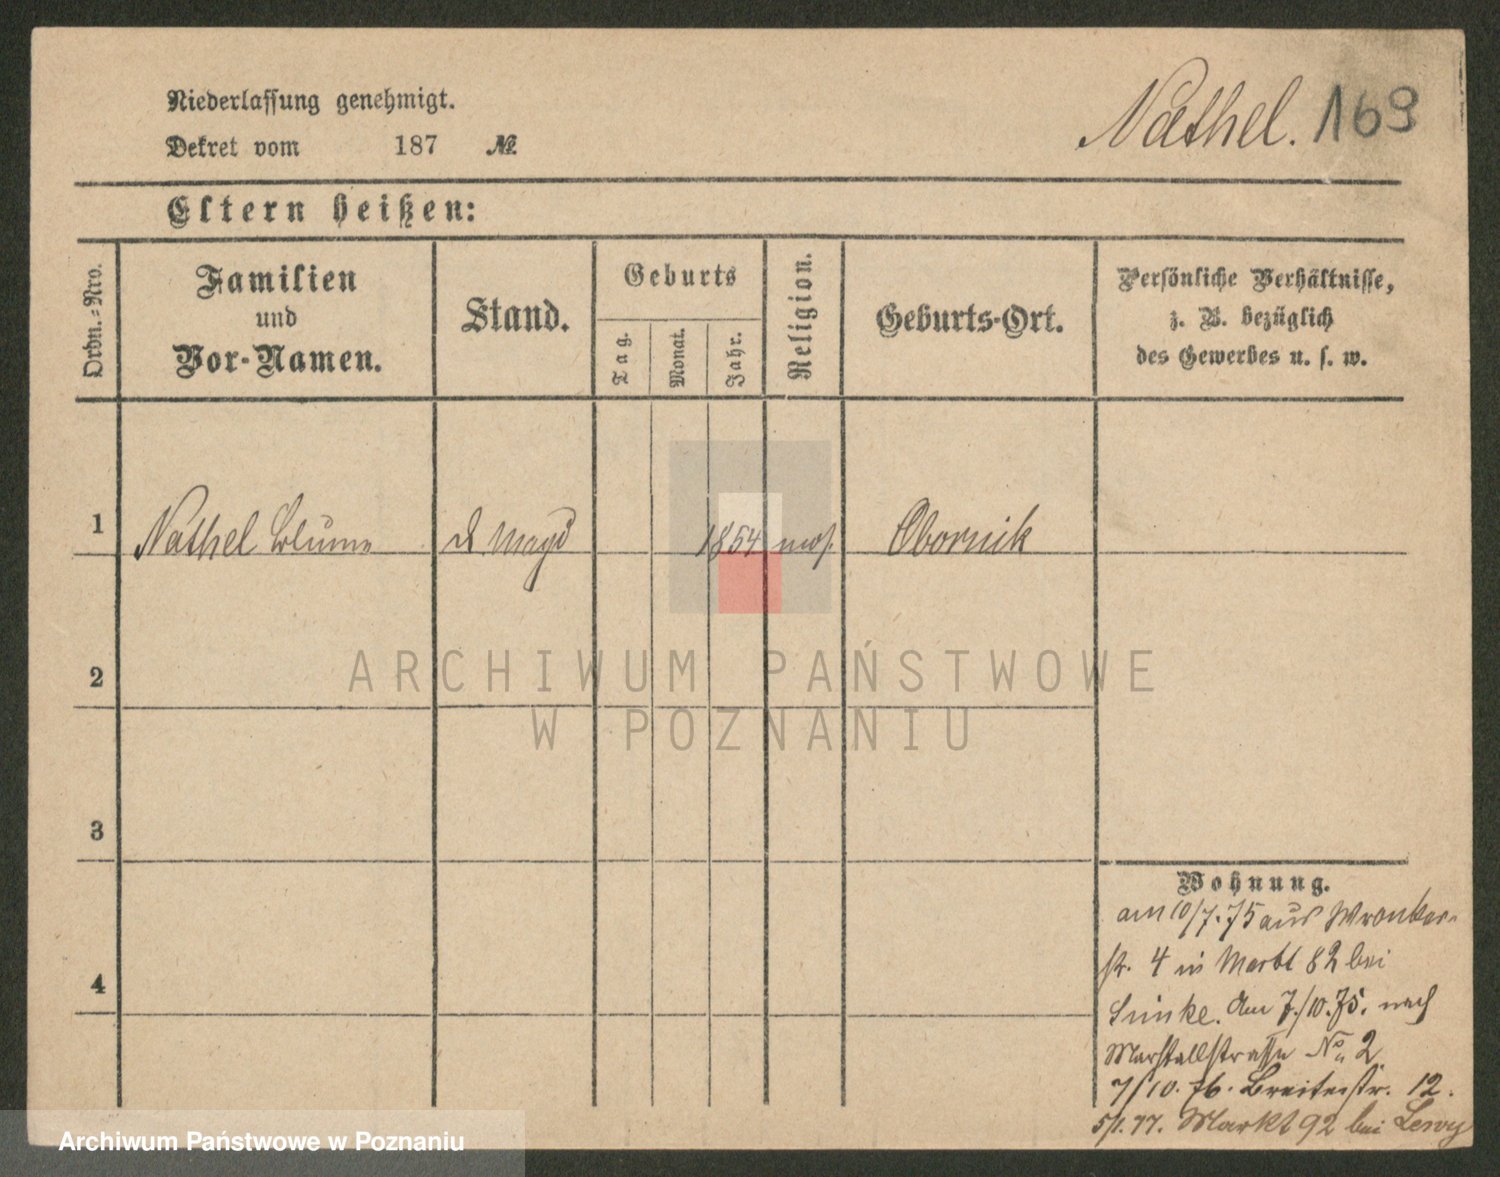 Niederlassung genehmigt.
Dekret vom 187 №
Nathel. 169
Eltern heißen:
Ordn.-Nro.
Familien
und
Vor-Namen.
Stand.
Geburts
Tag.
Monat.
Jahr.
Religion.
Geburts-Ort.
Persönliche Verhältnisse,
z. B. bezüglich
des Gewerbes u. s. w.
1 Nathel Blume d Magd 1854 mos. Obornik
2
ARCHIWUM PAŃSTWOWE
W POZNANIU
3
4
Wohnung.
am 10/7.75 aus Wronker-
str. 4 in Markt 82 bei
Am 7./10.75. nach
Marstallstrasse No 2
7/10.76. Breitestr. 12.
5/1.77. Markt 92 bei Lewy
Archiwum Państwowe w Poznaniu